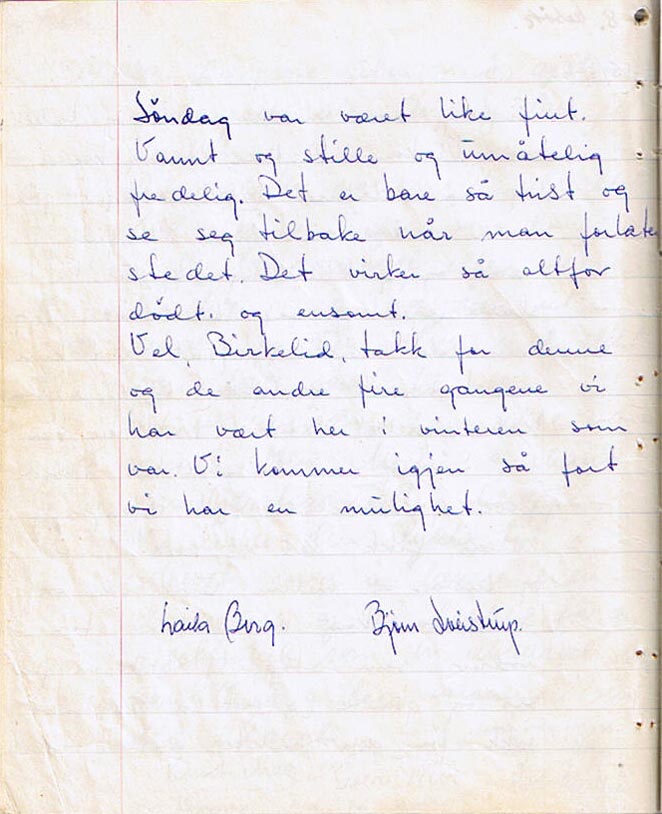 Søndag var været like fint.
Varmt og stille og umåtelig
fredelig. Det er bare så trist og
se seg tilbake når man forlater
stedet. Det virker så altfor
dødt. og ensomt.
Vel, Birkelid, takk for denne
og de andre fire gangene vi
har vært her i vinteren som
var. Vi kommer igjen så fort
vi har en mulighet.
Laila Berg. Bjørn